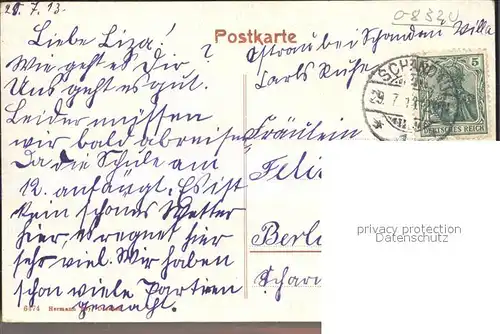 29.7.13.
08320
Postkarte
Liebe Liza!
Wie geht es Dir?
Uns geht es gut.
Leider müssen
wir bald abreisen
Da die Schule am
12. anfängt. Es ist
kein schönes Wetter
hier, es regnet hier
sehr viel. Wir haben
schon viele Partieen
gemacht.
Ostrau bei Schandau Villa
Carlsruhe
SCHANDAU
29.7.13
5
DEUTSCHES REICH
Fräulein
Feli
Berl
Schar
privacy protection
Datenschutz
6174 Hermann